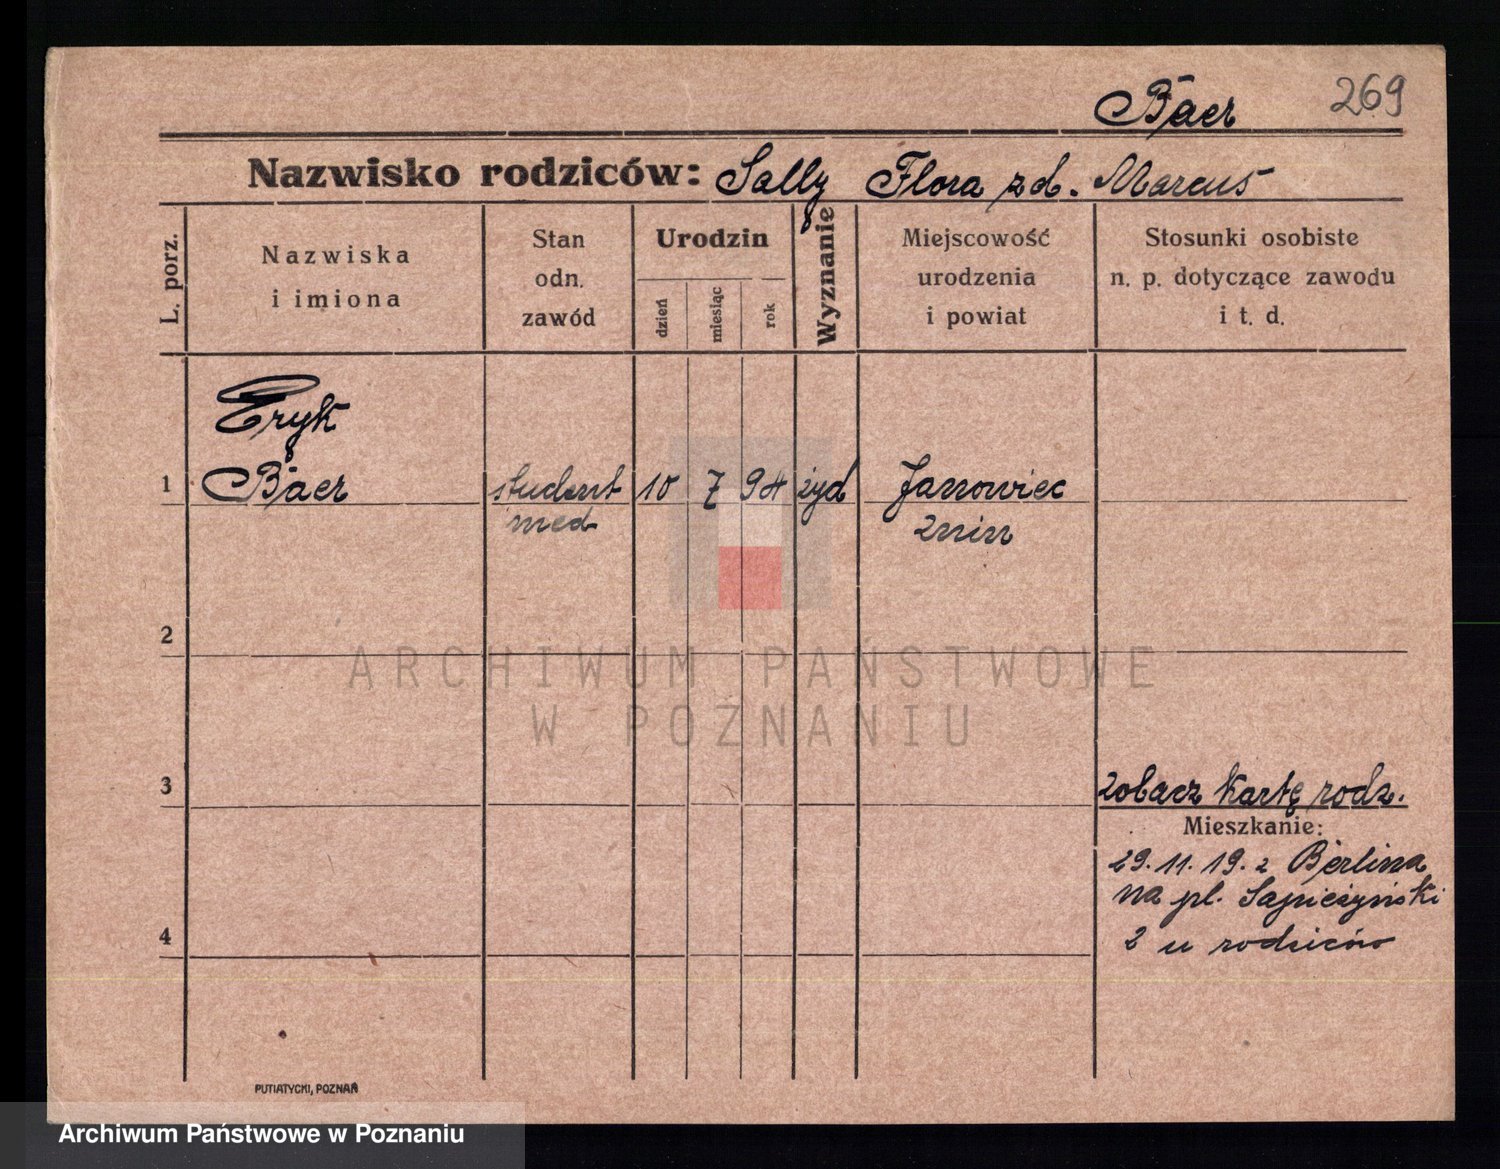 Bäer 269
Nazwisko rodziców: Sally Flora zd. Marcus
L. porz.
Nazwiska
i imiona
Stan
odn.
zawód
Urodzin
dzień
miesiąc
rok
Wyznanie
Miejscowość
urodzenia
i powiat
Stosunki osobiste
n. p. dotyczące zawodu
i t. d.
Eryk
1 Bäer student 10 7 94 żyd Janowiec
med Żnin
2
ARCHIWUM PAŃSTWOWE
W POZNANIU
3 zobacz kartę rodz.
Mieszkanie:
29.11.19. z Berlina
na pl. Sapieżyński
4 2 u rodziców
PUTIATYCKI, POZNAŃ
Archiwum Państwowe w Poznaniu